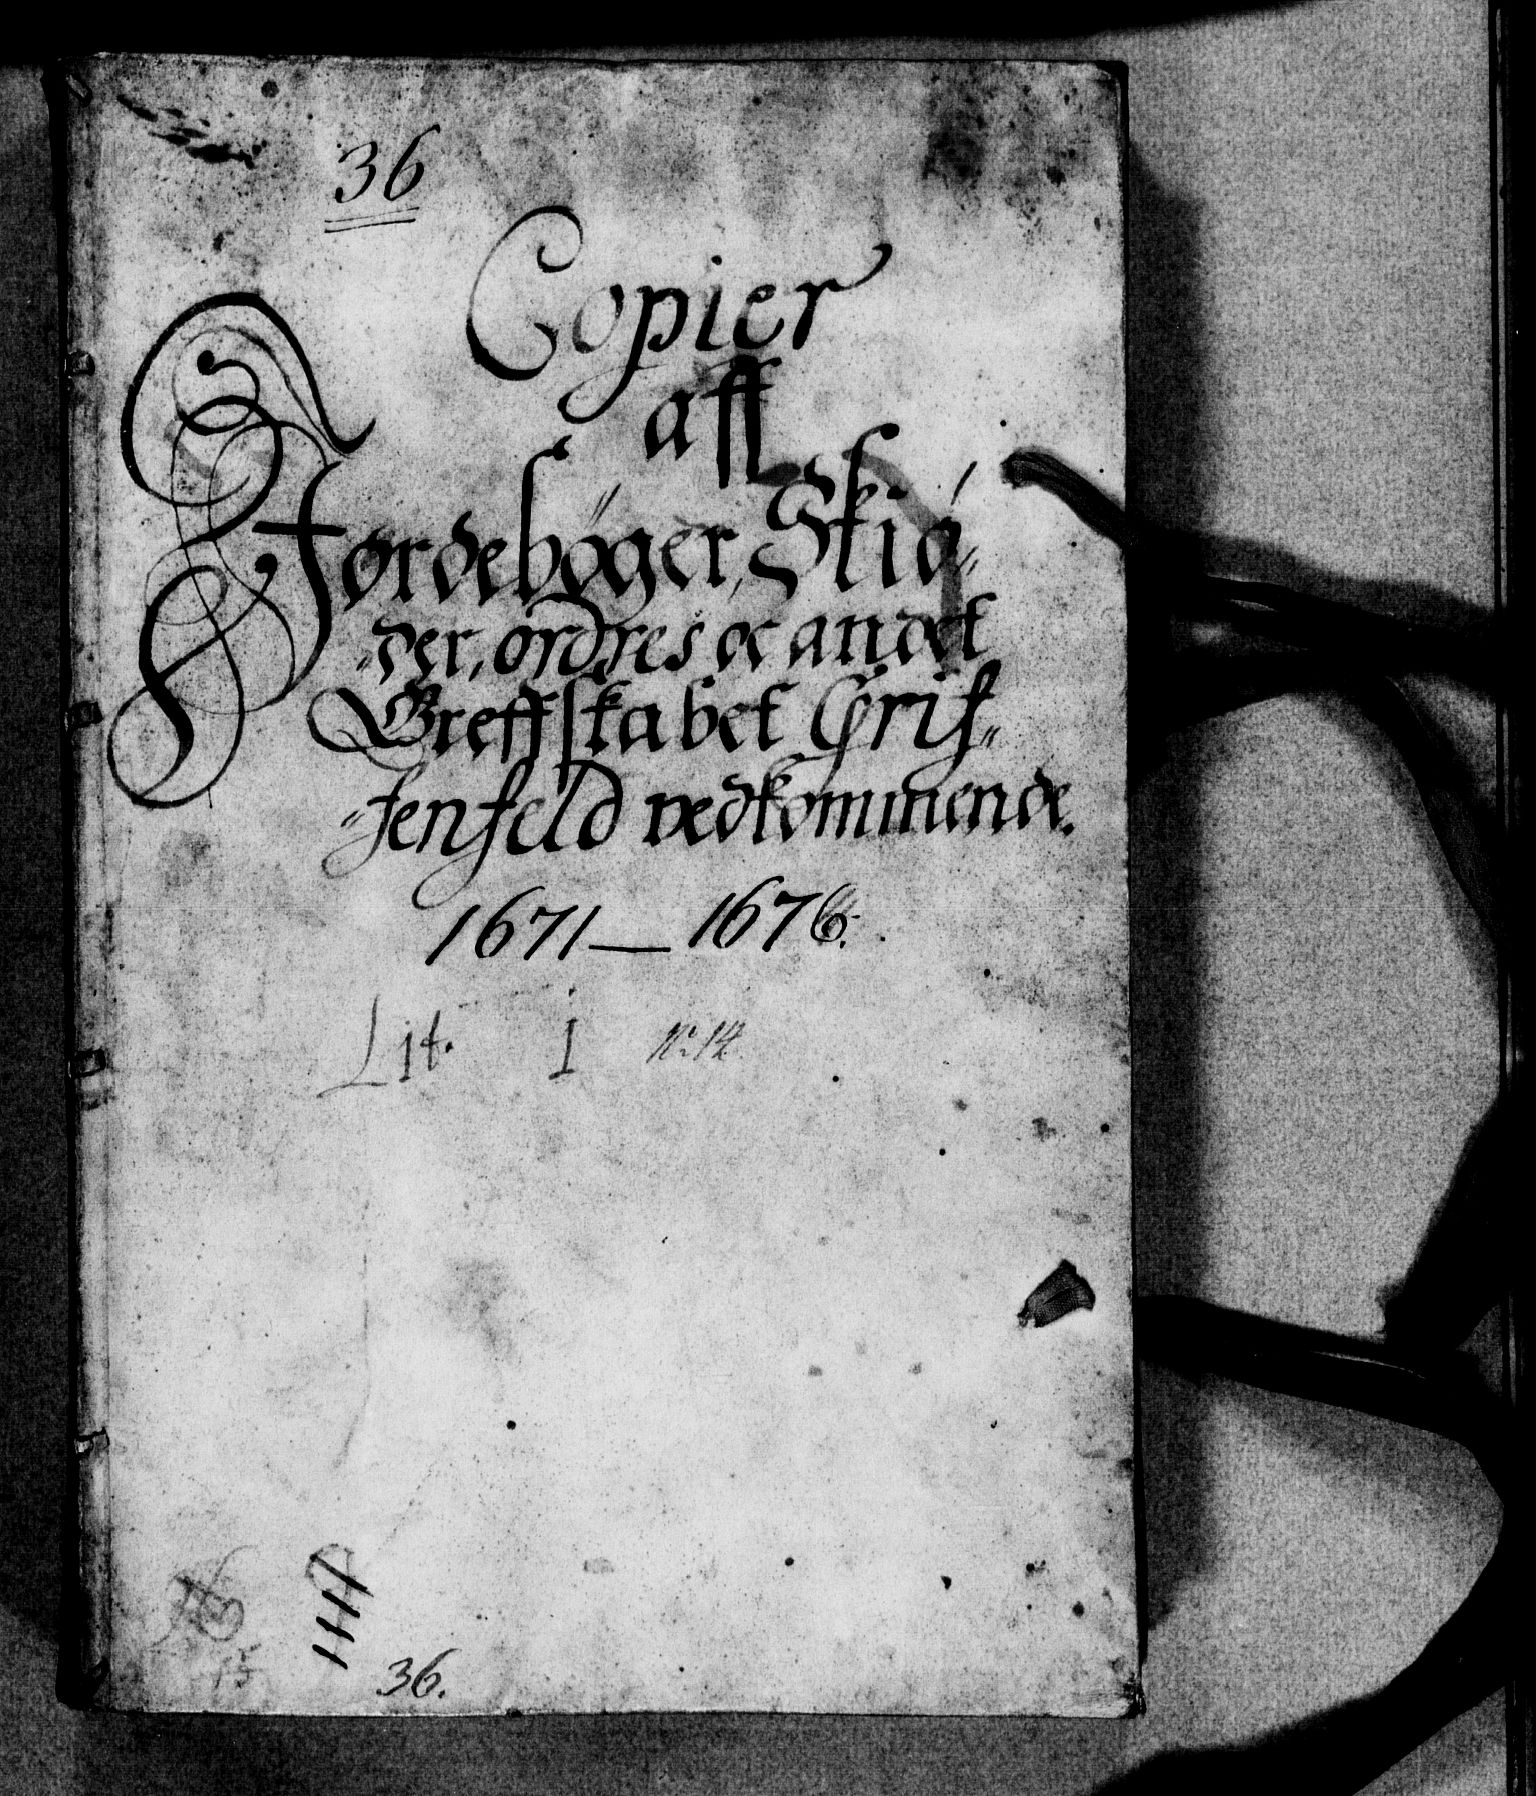 36
Copier
aff
Jordebøger, Skiø⸗
⸗der, ordres oc andet
Greffskabet Grif⸗
⸗fenfeld vedkommende.
1671 — 1676.
Lit. I No. 14
36.